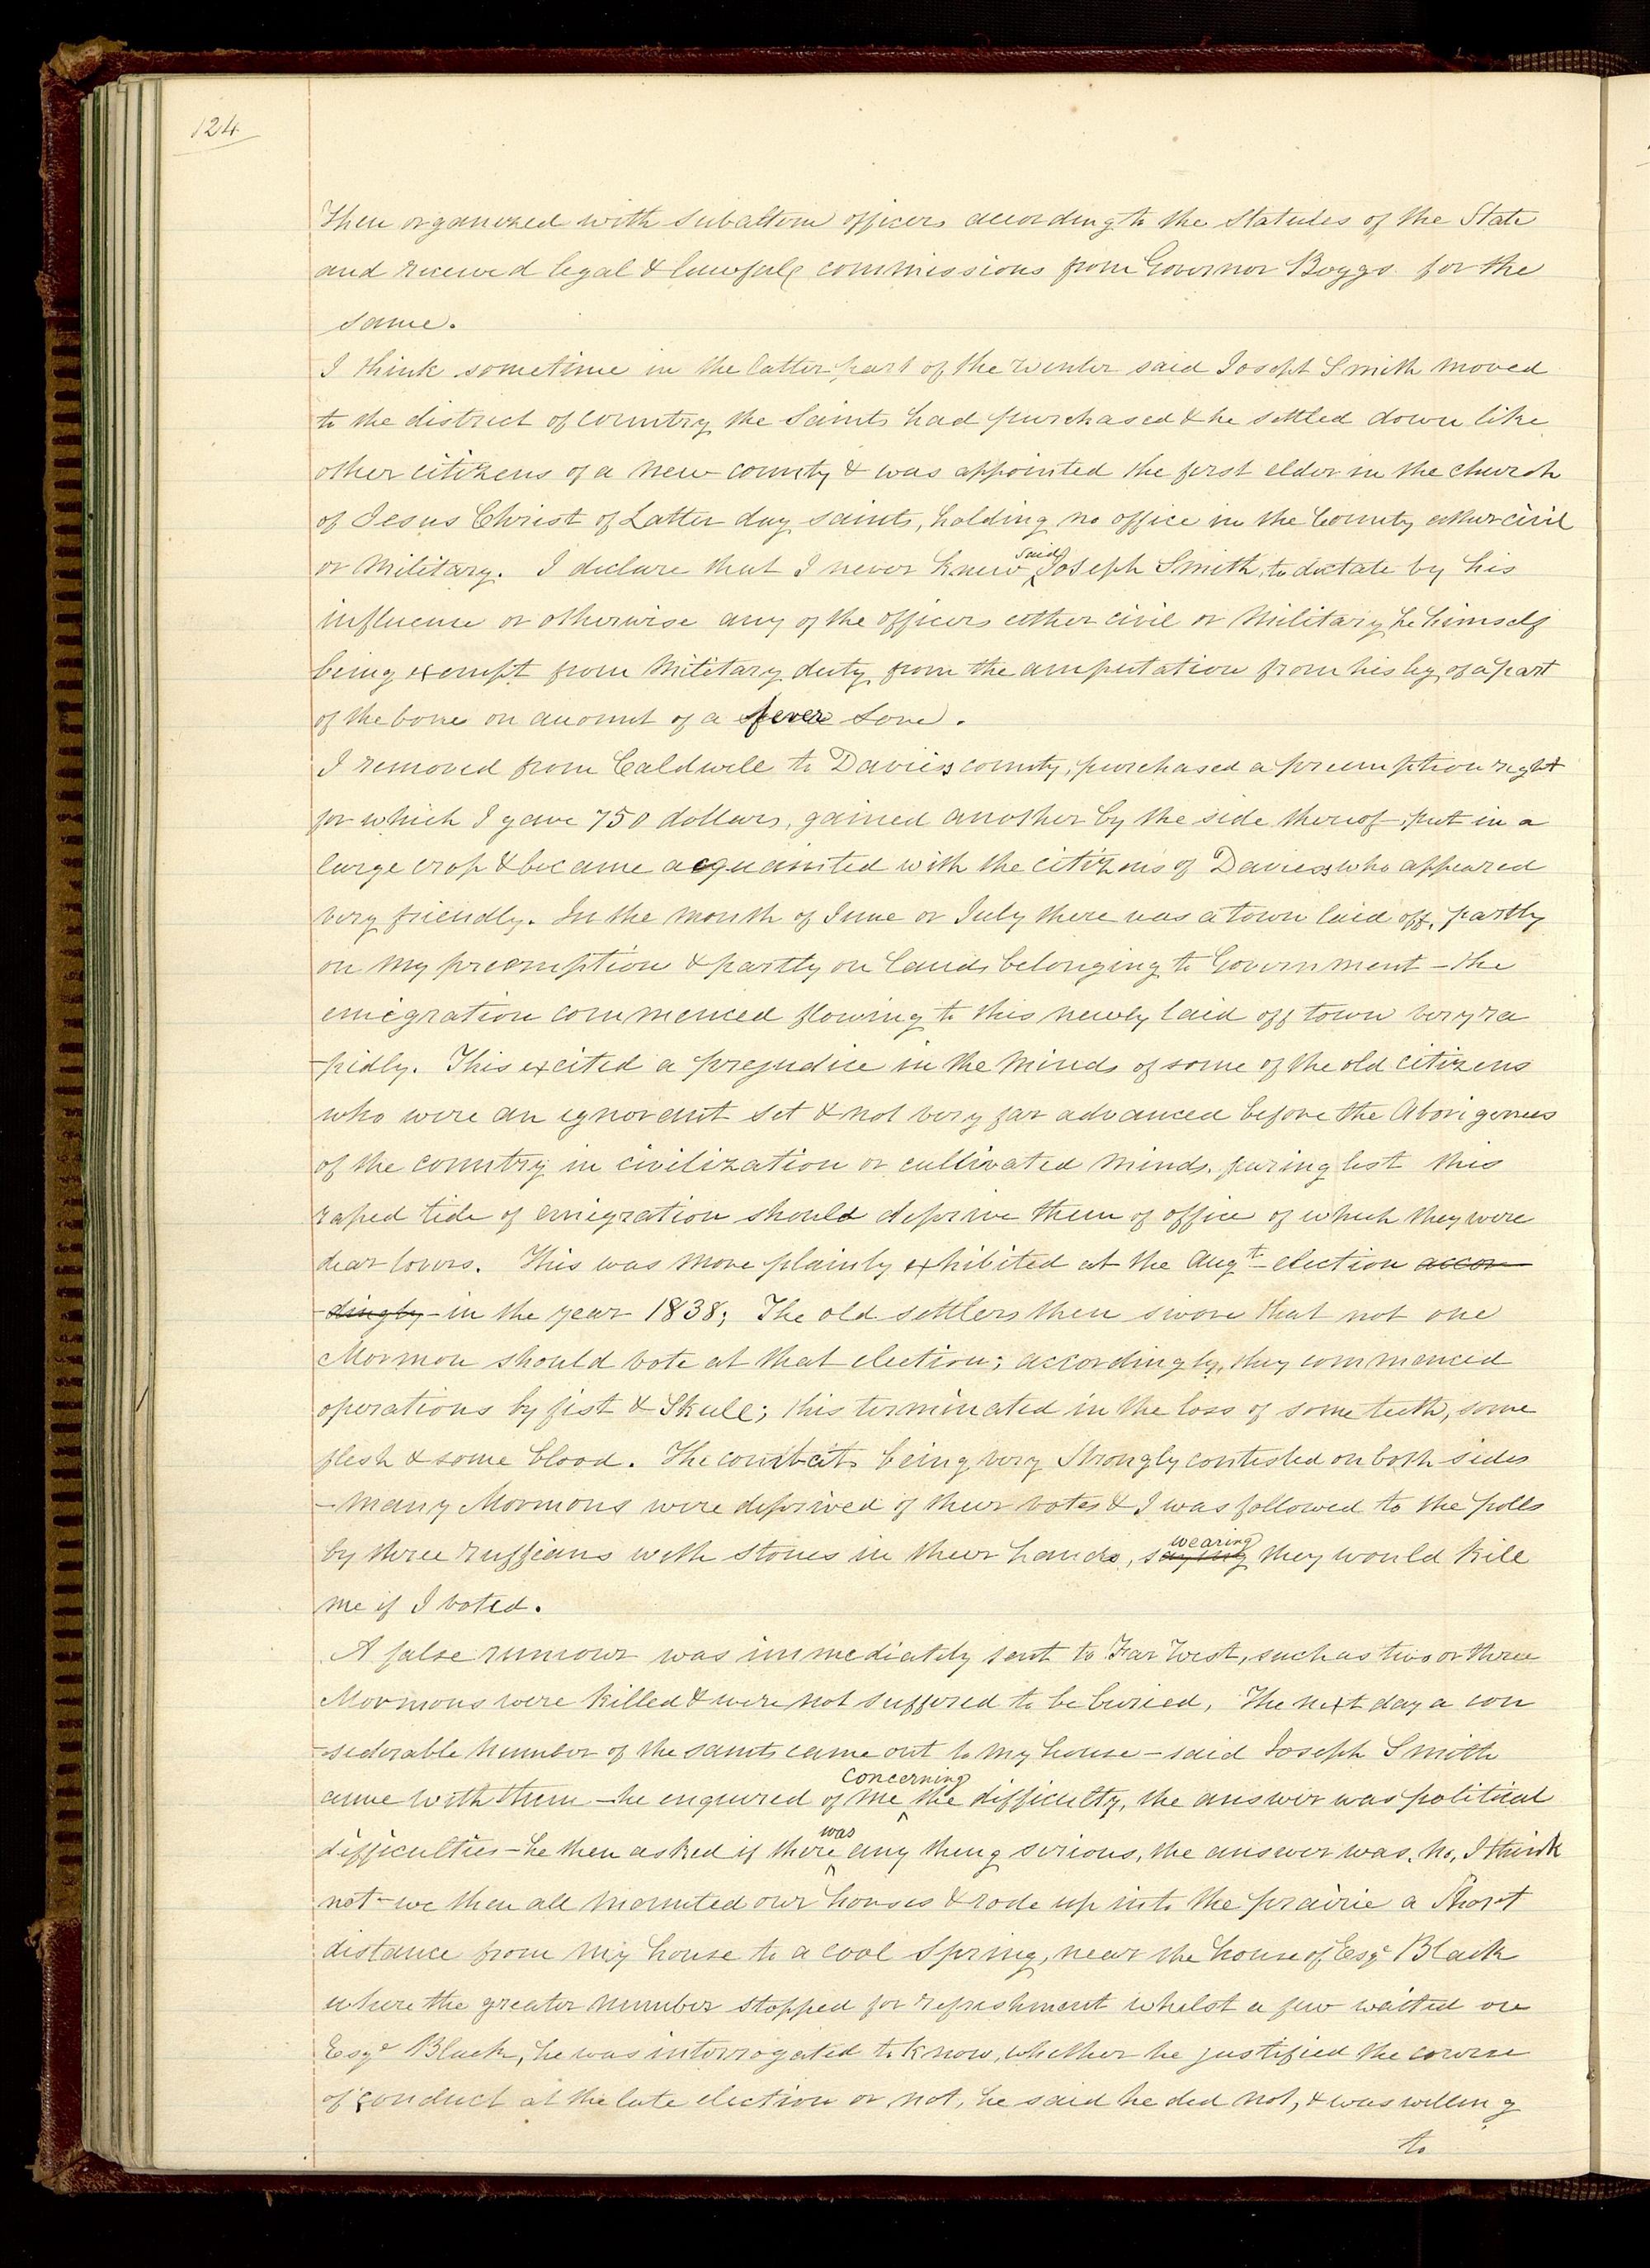 124
then organized with subaltern officers according to the statutes of the State
and received legal & lawfull commissions from Governor Boggs for the
same.
I think sometime in the latter part of the winter said Joseph Smith moved
to the district of country the Saints had purchased & he settled down like
other citizens of a new county & was appointed the first elder in the church
of Jesus Christ of Latter day saints, holding no office in the County either civil
or Military. I declare that I never knew said Joseph Smith, to dictate by his
influence or otherwise any of the officers either civil or Military, he himself
being exempt from Military duty from the amputation from his leg of a part
of the bone on account of a fever sore.
I removed from Caldwell to Daviess county, purchased a preemption right
for which I gave 750 dollars, gained another by the side thereof, put in a
large crop & became acquainted with the citizens of Daviess who appeared
very friendly. In the month of June or July there was a town laid off, partly
on my preemption & partly on lands belonging to Government — the
emigration commenced flowing to this newly laid off town very ra
-pidly. This excited a prejudice in the minds of some of the old citizens
who were an ignorant set & not very far advanced before the Aborigenees
of the country in civilization or cultivated minds, fearing lest this
raped tide of emigration should deprive them of office of which they were
dear lovers. This was more plainly exhibited at the Augt election accor-
-dingly in the year 1838; The old settlers then swore that not one
Mormon should vote at that election; accordingly, they commenced
operations by fist & Skull; this terminated in the loss of some teeth, some
flesh & some blood. The combats being very strongly contested on both sides
-many Mormons were deprived of their votes & I was followed to the polls
by three ruffians with stones in their hands, saying wearing they would kill
me if I voted.
A false rumour was immediately sent to Far West, such as two or three
Mormons were killed & were not suffered to be buried, The next day a con
-siderable number of the saints came out to my house — said Joseph Smith
came with them — he enquired of me concerning the difficulty, the answer was political
difficulties — he then asked if there was any thing serious, the answer was, no, I think
not — we then all mounted our horses & rode up into the prairie a short
distance from my house to a cool spring, near the house of Esqr Black
where the greater number stopped for refreshment whilst a few waited on
Esqr Black, he was interrogated to know, whether he justified the course
of conduct at the late election or not, he said he did not, & was willing
to